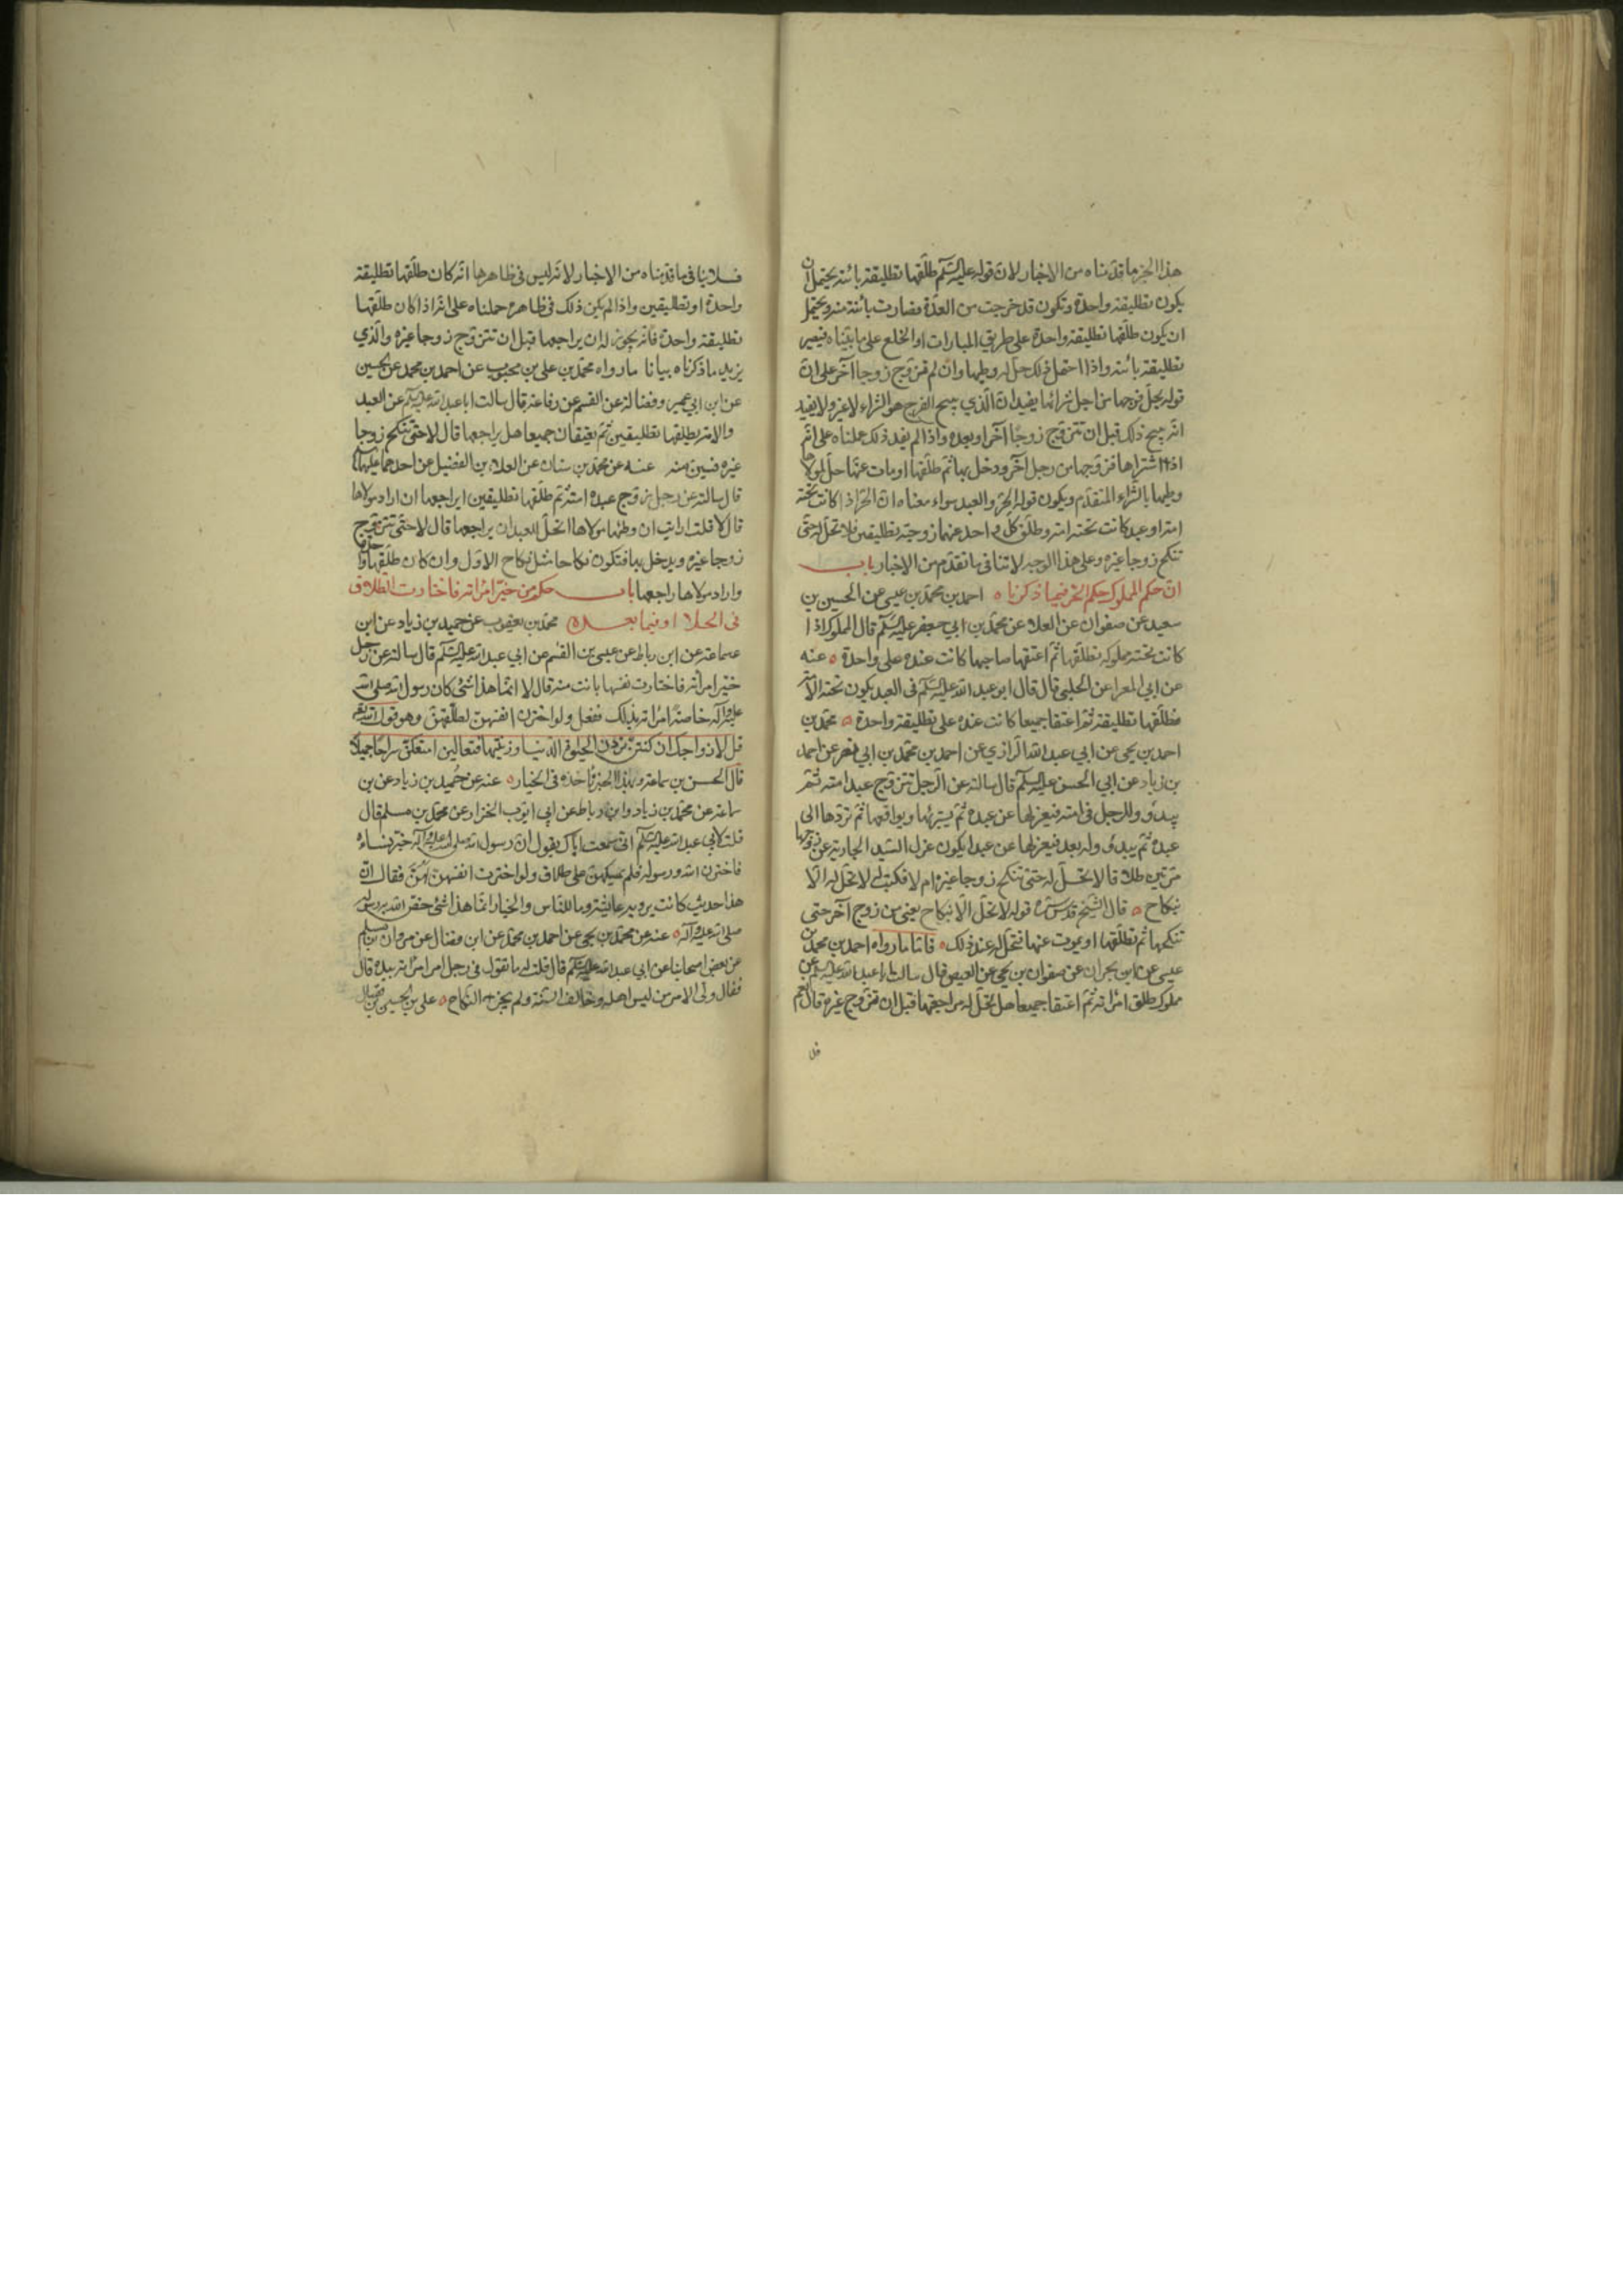 هذا الخبر ما قدّمناه من الاخبار لان قوله عليه السّلم طلّقها تطليقة بائنة يحتمل ان
يكون تطليقة واحدة وتكون قد خرجت من العدّة فصارت بائنة منه ويحتمل
ان يكون طلّقها تطليقة واحدة على طريق المبارات او الخلع على ما بيّناه فيصير
تطليقة بائنة واذا احتمل ذلك حلّ له وطيها وان لم تتزوّج زوجا آخر على انّ
قوله يحلّ فرجها من اجل شرائها يفيد انّ الّذي يبيح الفرج هو الشراء لا غير ولا يفيد
انّه يبيح ذلك قبل ان تتزوّج زوجًا آخر او بعده واذا لم يفد ذلك حملناه على انّه
اذا اشتراها فزوّجها من رجل آخر ودخل بها ثم طلّقها او مات عنها حلّ لمولاها
وطيها بالشّراء المتقدّم ويكون قوله الحرّ والعبد سواء معناه انّ الحرّ اذا كانت تحته
امة او عبد كانت تحته امة وطلّق كلّ واحد منهما زوجته تطليقتين فلا تحلّ له حتّى
تنكح زوجا غيره وعلى هذا الوجه لا تنافى ما تقدّم من الاخبار باب
انّ حكم المملوك حكم الحرّ فيما ذكرناه ه احمد بن محمّد بن عيسى عن الحسين بن
سعيد عن صفوان عن العلا عن محمّد بن ابي جعفر عليه السّلم قال المملوك اذا
كانت تحته مملوكة فطلّقها ثم اعتقها صاحبها كانت عنده على واحدة ه عنه
عن ابي المعرا عن الحلبي قال قال ابو عبد الله عليه السّلم فى العبد يكون تحته الامة
فطلّقها تطليقة ثم اعتقا جميعا كانت عنده على تطليقة واحدة ه محمّد بن
احمد بن يحيى عن ابي عبد الله الرّازي عن احمد بن محمّد بن ابي نصر عن احمد
بن زياد عن ابي الحسن عليه السّلم قال سالته عن الرّجل تزوّج عبده امته ثم
يبدؤ للرجل فى امته فيعزلها عن عبده ثم يستبرئها ويواقعها ثم تردّها الى
عبده ثم يبدؤ له بعد فيعزلها عن عبده ايكون عزل السّيّد الجارية عن زوجها
مرّتين طلاقا لا تحلّ له حتى تنكح زوجا غيره ام لا فكتب لا تحلّ له الّا
بنكاح ه قال الشّيخ قدّس سرّه قوله لا تحلّ الّا بنكاح يعنى من زوج آخر حتى
تنكحها ثم تطلّقها او يموت عنها فتحلّ له عند ذلك ه فامّا ما رواه احمد بن محمّد بن
عيسى عن ابن بحران عن صفوان بن يحيى عن العيص قال سالت ابا عبد الله عليه السّلم عن
مملوك طلّق امراته ثم اعتقا جميعا هل تحلّ له مراجعتها قبل ان تتزوّج غيره قال نعم
فلا
فلا ينافى ما قدّمناه من الاخبار لانّه ليس فى ظاهرها انّه كان طلّقها تطليقة
واحدة او تطليقين واذا لم يكن ذلك فى ظاهره حملناه على انّه اذا كان طلّقها
تطليقة واحدة فانّه يجوز له ان يراجعها قبل ان تتزوّج زوجا غيره والّذي
يزيد ما ذكرناه بيانا ما رواه محمّد بن على بن محبوب عن احمد بن محمّد عن الحسين
عن ابن ابي عمير وفضالة عن القسم عن رفاعة قال سالت ابا عبد الله عليه السّلم عن العبد
والامة يطلّقها تطليقتين ثم يعتقان جميعا هل يراجعها قال لا حتى تنكح زوجا
غيره فتبين منه عنه عن محمّد بن سنان عن العلا بن الفضيل عن احدهما عليهما السّلم
قال سالته عن رجل زوّج عبده امته ثم طلّقها تطليقتين ايراجعها ان اراد مولاها
قال لا قلت ارايت ان وطئها مولاها اتحلّ للعبد ان يراجعها قال لا حتّى تتزوّج
زوجا غيره ويدخل بها فتكون نكاحا مثل نكاح الاوّل وان كان طلّقها واحدة
واراد مولاها راجعها باب حكم من خيّر امراته فاختارت الطلاق
فى الحلا او فيما بعده محمّد بن يعقوب عن حميد بن زياد عن ابن
سماعة عن ابن رباط عن عيسى بن القسم عن ابي عبد الله عليه السّلم قال سالته عن رجل
خيّر امراته فاختارت نفسها بانت منه قال لا انّما هذا شئ كان رسول الله صلى الله
عليه وآله خاصّة امر بذلك ففعل ولو اخترن انفسهنّ لطلّقهنّ وهو قول الله تع
قل لازواجك ان كنتنّ تردن الحيوة الدّنيا وزينتها فتعالين امتعكنّ سراحا جميلا
قال الحسن بن سماعة وبهذا الخبر ناخذ فى الخيار ه عنه عن حُميد بن زياد عن بن
سماعة عن محمّد بن زياد وابن رباط عن ابى ايّوب الخزاز عن محمّد بن مسلم قال
قلت لابي عبد الله عليه السّلم انّى سمعت اباك يقول انّ رسول الله صلى الله عليه وآله خيّر نساءه
فاخترن الله ورسوله فلم يمسكهنّ على طلاق ولو اخترن انفسهنّ لبنّ فقال انّ
هذا حديث كانت يرويه عايشة وما للنّاس والخيار انّما هذا شئ خصّ الله به رسوله
صلى الله عليه وآله ه عنه عن محمّد بن يحيى عن احمد بن محمّد عن ابن فضال عن مروان بن مسلم
عن بعض اصحابنا عن ابي عبد الله عليه السّلم قال قلت له ما تقول فى رجل امر امراته بيده قال
فقال ولى الامر من ليس اهله وخالف السّنّة ولم يجز النكاح ه على بن الحسين بن فضال